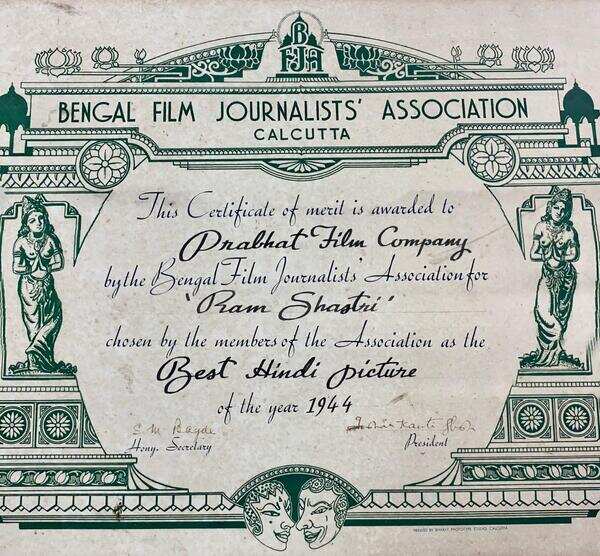 B
FJA
BENGAL FILM JOURNALISTS' ASSOCIATION
CALCUTTA
This Certificate of merit is awarded to
Prabhat Film Company
by the Bengal Film Journalists' Association for
"Ram Shastri"
chosen by the members of the Association as the
Best Hindi picture
of the year 1944
Hony. Secretary
President